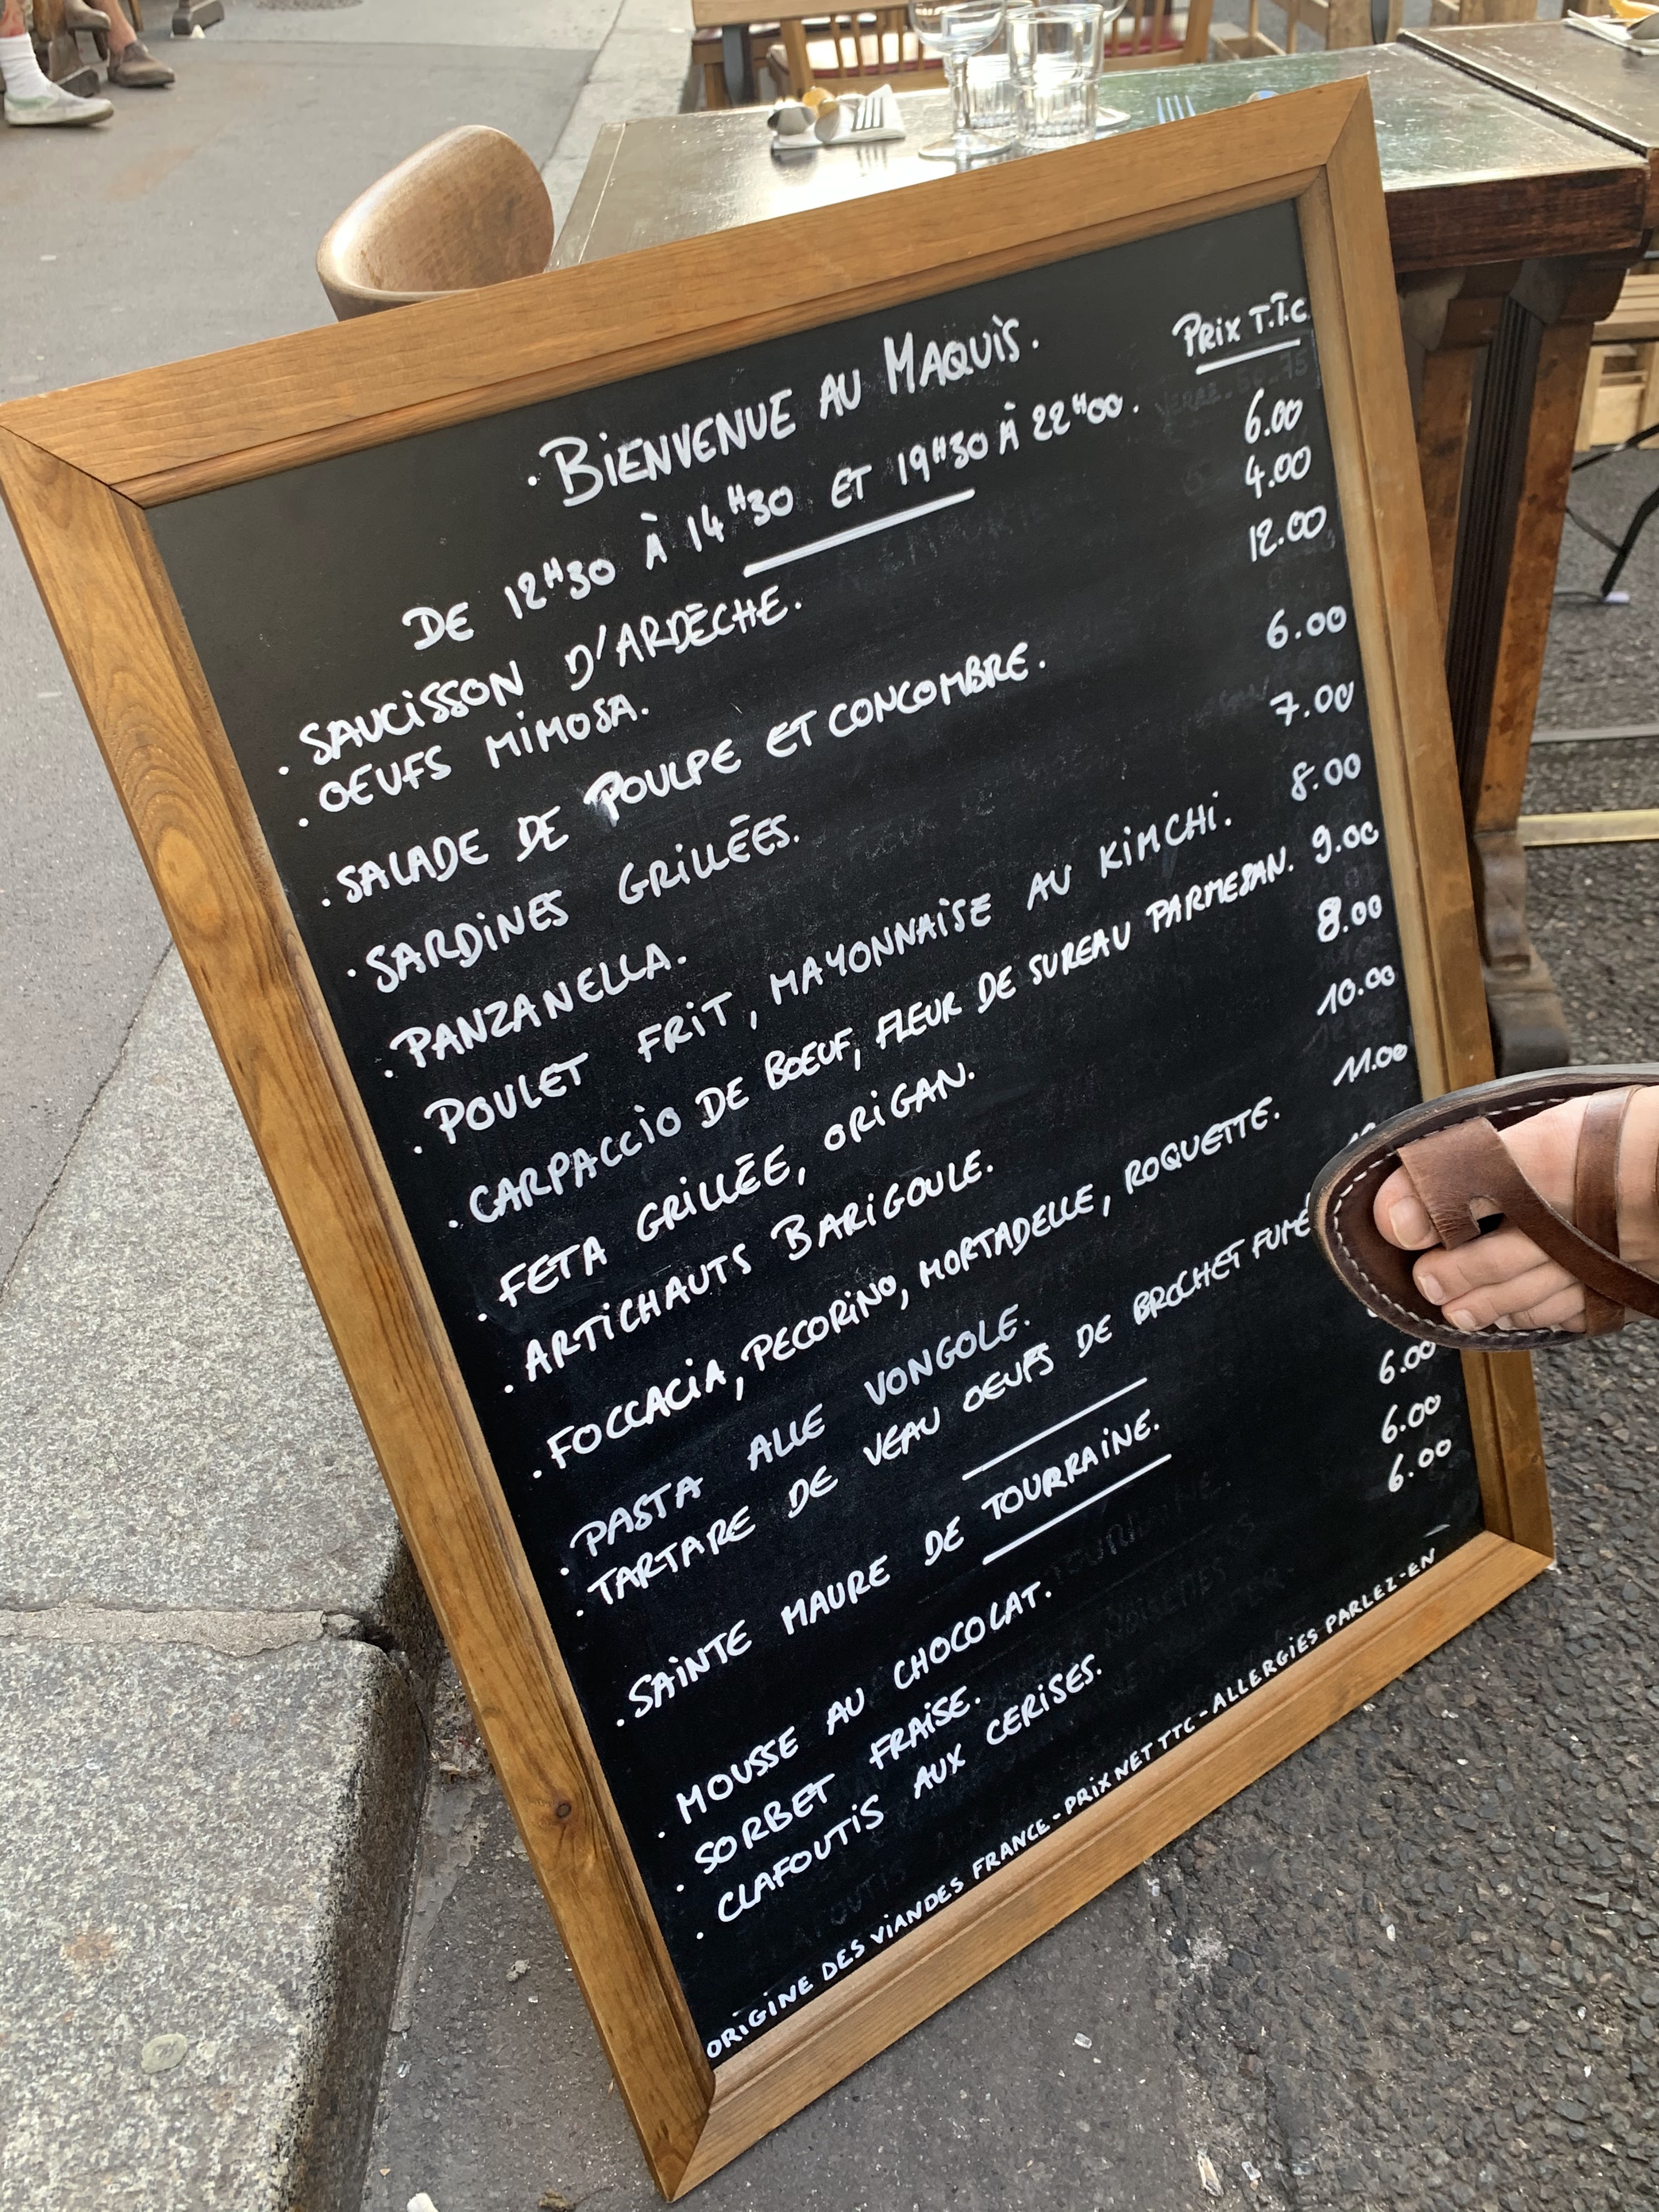 BIENVENUE AU MAQUIS. PRIX T.T.C
DE 12H30 À 14H30 ET 19H30 À 22H00.
SAUCISSON D'ARDÈCHE. 6.00
OEUFS MIMOSA. 4.00
SALADE DE POULPE ET CONCOMBRE. 12.00
SARDINES GRILLÉES. 6.00
PANZANELLA. 7.00
POULET FRIT, MAYONNAISE AU KIMCHI. 8.00
CARPACCIO DE BOEUF, FLEUR DE SUREAU PARMESAN. 9.00
FETA GRILLÉE, ORIGAN. 8.00
ARTICHAUTS BARIGOULE. 10.00
FOCCACIA, PECORINO, MORTADELLE, ROQUETTE. 11.00
PASTA ALLE VONGOLE.
TARTARE DE VEAU OEUFS DE BROCHET FUMÉ
SAINTE MAURE DE TOURRAINE.
MOUSSE AU CHOCOLAT. 6.00
SORBET FRAISE. 6.00
CLAFOUTIS AUX CERISES. 6.00
ORIGINE DES VIANDES FRANCE - PRIX NET TTC - ALLERGIES PARLEZ-EN